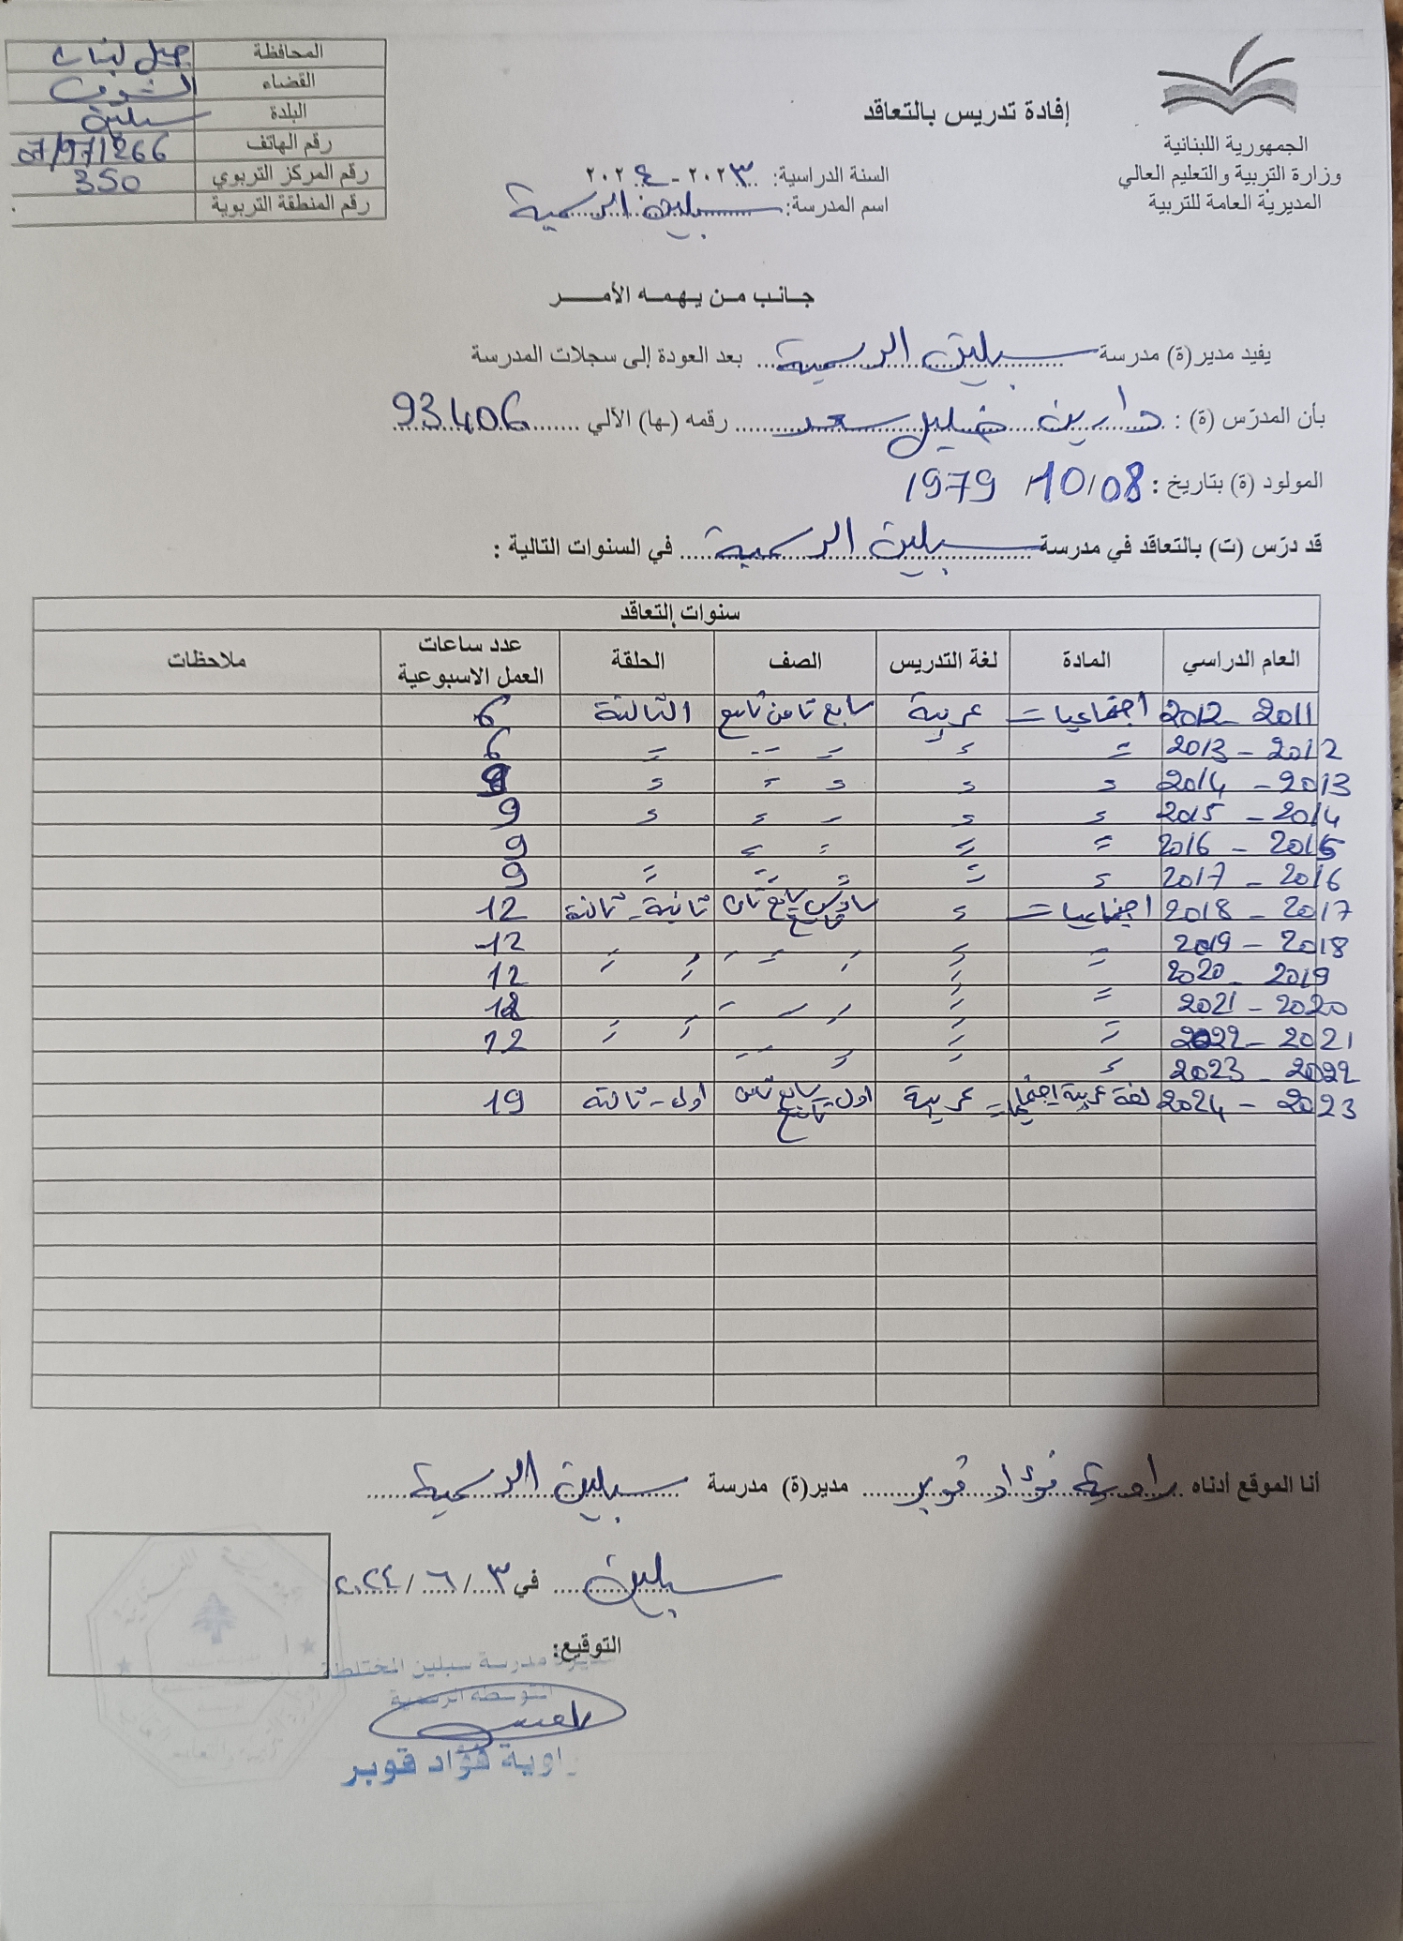 الجمهورية اللبنانية
وزارة التربية والتعليم العالي
المديرية العامة للتربية
إفادة تدريس بالتعاقد
السنة الدراسية: ٢٠٢٣ - ٢٠٢٤
اسم المدرسة: سبلين الرسمية
المحافظة جبل لبنان
القضاء الشوف
البلدة سبلين
رقم الهاتف 07/971266
رقم المركز التربوي 350
رقم المنطقة التربوية
جانب من يهمه الأمر
يفيد مدير(ة) مدرسة سبلين الرسمية بعد العودة إلى سجلات المدرسة
بأن المدرّس (ة) : دارين خليل سعد رقمه (ـها) الآلي 93406
المولود (ة) بتاريخ : 08/10/1979
قد درّس (ت) بالتعاقد في مدرسة سبلين الرسمية في السنوات التالية :
سنوات التعاقد
العام الدراسي المادة لغة التدريس الصف الحلقة عدد ساعات العمل الاسبوعية ملاحظات
2011 - 2012 اجتماعيات عربية سابع ثامن تاسع الثالثة 6
2012 - 2013 = = = = = 6
2013 - 2014 = = = = =
2014 - 2015 = = = = = 9
2015 - 2016 = = = = 9
2016 - 2017 = = = = = 9
2017 - 2018 اجتماعيات = سادس سابع ثامن تاسع ثانية - ثالثة 12
2018 - 2019 = = = = = = 12
2019 - 2020 = 12
2020 - 2021 = = = = = = 12
2021 - 2022 = = = = 12
2022 - 2023 =
2023 - 2024 لغة عربية اجتماعيات عربية اول - سابع ثامن تاسع اولى - ثالثة 19
أنا الموقع أدناه راوية فؤاد قوبر مدير(ة) مدرسة سبلين الرسمية
سبلين في ٣ / ٦ / ٢٠٢٤
التوقيع:
مديرة مدرسة سبلين المختلطة
المتوسطة الرسمية
راوية فؤاد قوبر